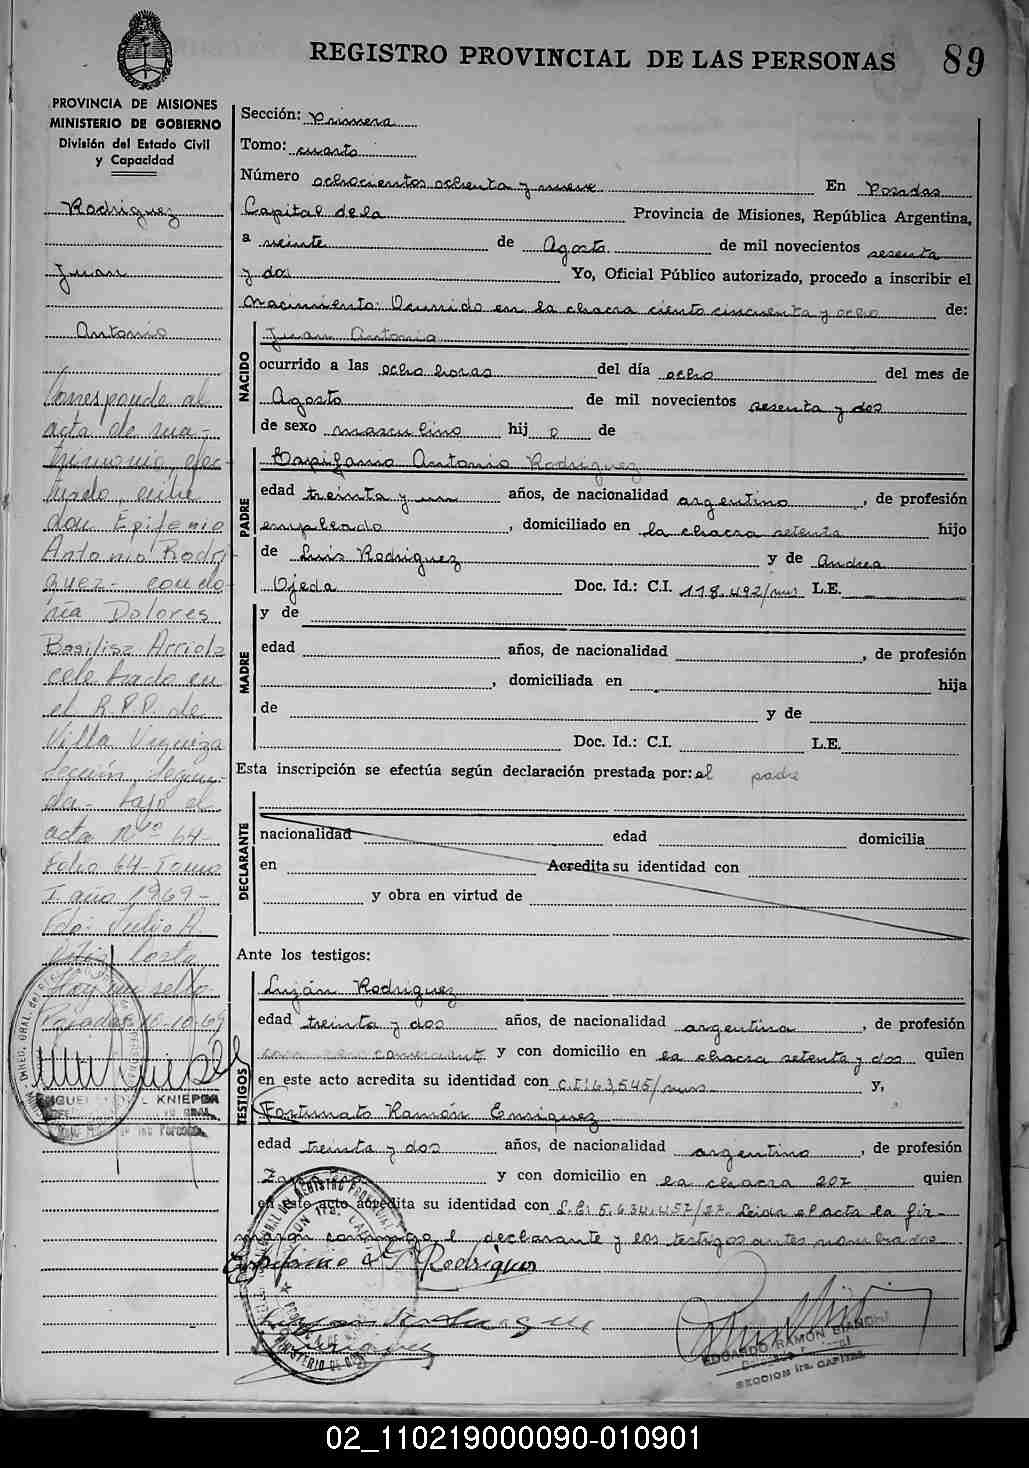 REGISTRO PROVINCIAL DE LAS PERSONAS 89
PROVINCIA DE MISIONES
MINISTERIO DE GOBIERNO
División del Estado Civil
y Capacidad
Rodriguez
Juan
Antonio
Corresponde al
acta de ma-
trimonio, efec-
tuado, entre
don Epifanio
Antonio Rodri
guez - con do-
ña Dolores
Basilisa Arriola
celebrado en
el R.P.P. de
Villa Urquiza
Sección Segun-
da - bajo el
acta Nº 64-
Folio 64-Tomo
I año 1969-
Fdo: Julio A.
Costa
Hoy un sello.
Posadas 16-10-69
KNIEPER
de las Personas
Sección: Primera
Tomo: cuarto
Número ochocientos ochenta y nueve En Posadas
Capital de la Provincia de Misiones, República Argentina,
a veinte de Agosto de mil novecientos sesenta
y dos Yo, Oficial Público autorizado, procedo a inscribir el
Nacimiento: Ocurrido en la chacra ciento cincuenta y ocho de:
NACIDO
Juan Antonio
ocurrido a las ocho horas del día ocho del mes de
Agosto de mil novecientos sesenta y dos
de sexo masculino hij o de
PADRE
Epifanio Antonio Rodriguez
edad treinta y un años, de nacionalidad argentino, de profesión
empleado, domiciliado en la chacra setenta hijo
de Luis Rodriguez y de Andrea
Ojeda Doc. Id.: C.I. 118.492/mns L.E.
MADRE
y de
edad años, de nacionalidad, de profesión
, domiciliada en hija
de y de
Doc. Id.: C.I. L.E.
Esta inscripción se efectúa según declaración prestada por: el padre
DECLARANTE
nacionalidad edad domicilia
en Acredita su identidad con
y obra en virtud de
Ante los testigos:
TESTIGOS
Luján Rodriguez
edad treinta y dos años, de nacionalidad argentina, de profesión
comerciante y con domicilio en la chacra setenta y dos quien
en este acto acredita su identidad con C.I. 163,545/mns y,
Fortunato Ramón Enriquez
edad treinta y dos años, de nacionalidad argentino, de profesión
y con domicilio en la chacra 207 quien
en este acto acredita su identidad con L.E. 5.634.457/37. Leida el acta la fir-
man conmigo el declarante y los testigos antes nombrados
Epifanio A. Rodriguez
EDGARDO RAMON BIANCHI
SECCION 1ra. CAPITAL
02_110219000090-010901